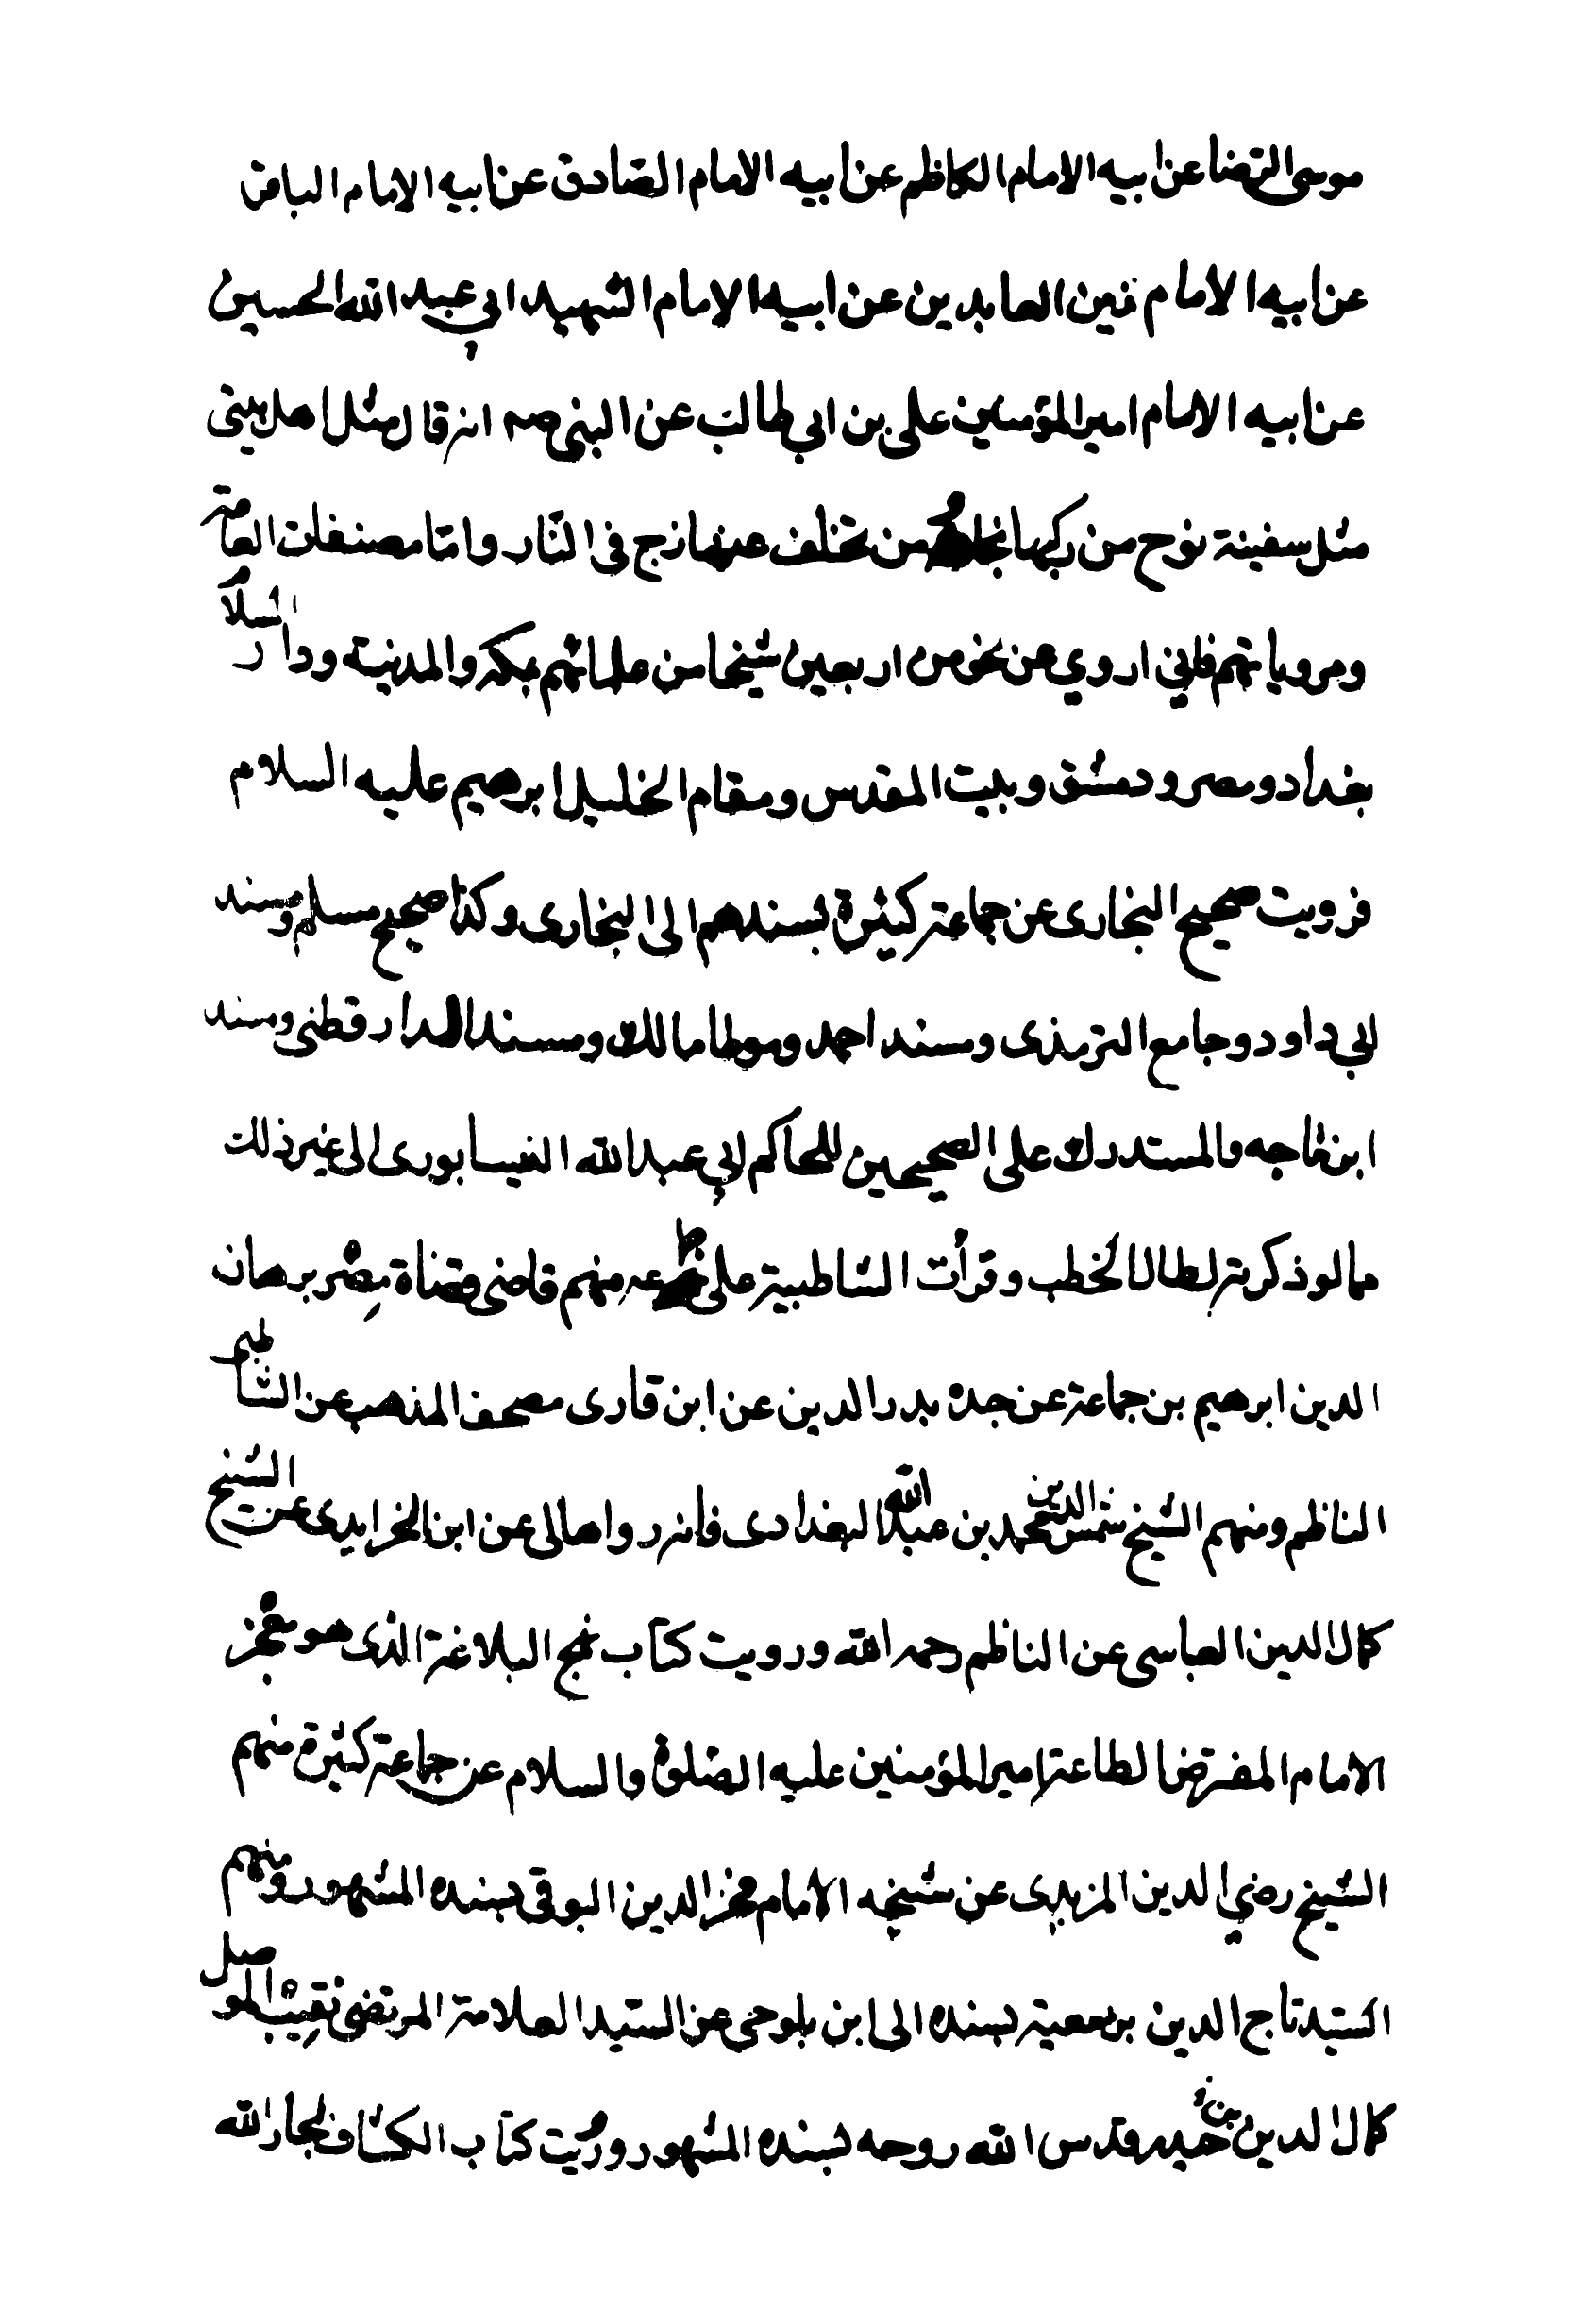 موسى الرضا عن ابيه الامام الكاظم عن ابيه الامام الصّادق عن ابيه الامام الباقر
عن ابيه الامام زين العابدين عن ابيه الامام الشهيد ابي عبد الله الحسين
عن ابيه الامام امير المؤمنين على بن ابي طالب عن النبى صه انه قال مثل اهل بيتى
مثل سفينة نوح من ركبها نجا ومن تخلف عنها زج فى النّار وامّا مصنفات العامة
ومروياتهم فاني اروي عن نحو من اربعين شيخا من علمائهم بمكه والمدينة ودار السلام
بغداد ومصر ودمشق وبيت المقدس ومقام الخليل ابرهيم عليه السلام
فرويت صحيح البخارى عن جماعة كثيرة بسندهم الى البخارى وكذا صحيح مسلم ومسند
ابي داود وجامع الترمذى ومسند احمد وموطا مالك ومسند الدارقطنى ومسند
ابن ماجه والمستدرك على الصحيحين للحاكم ابي عبد الله النيسابورى الى غير ذلك
مما لو ذكرته لطال الخطب وقرأت الشاطبية على جماعه منهم قاضى قضاة مصر برهان
الدين ابرهيم بن جماعة عن جده بدر الدين عن ابن قارى مصحف المذهب عن الشاطبى
الناظم ومنهم الشيخ شمس الدين محمد بن عبد الله البغدادى فانه رواها لى عن ابن الخرايدى عن الشيخ
كمال الدين العباسى عن الناظم رحمه الله ورويت كتاب نهج البلاغة الذى هو معجز
الامام المفترض الطاعة امير المؤمنين عليه الصّلوة والسلام عن جماعة كثيرة منهم
الشيخ رضي الدين المزيدى عن شيخه الامام فخر الدين البوقى بسنده المشهور ومنهم
السيّد تاج الدين بن معية بسنده الى ابن بلوحى عن السّيد العلامة المرتضى نقيب الموصل
كمال الدين بن حيدر قدس الله روحه بسنده المشهور ورويت كتاب الكشاف لجار الله